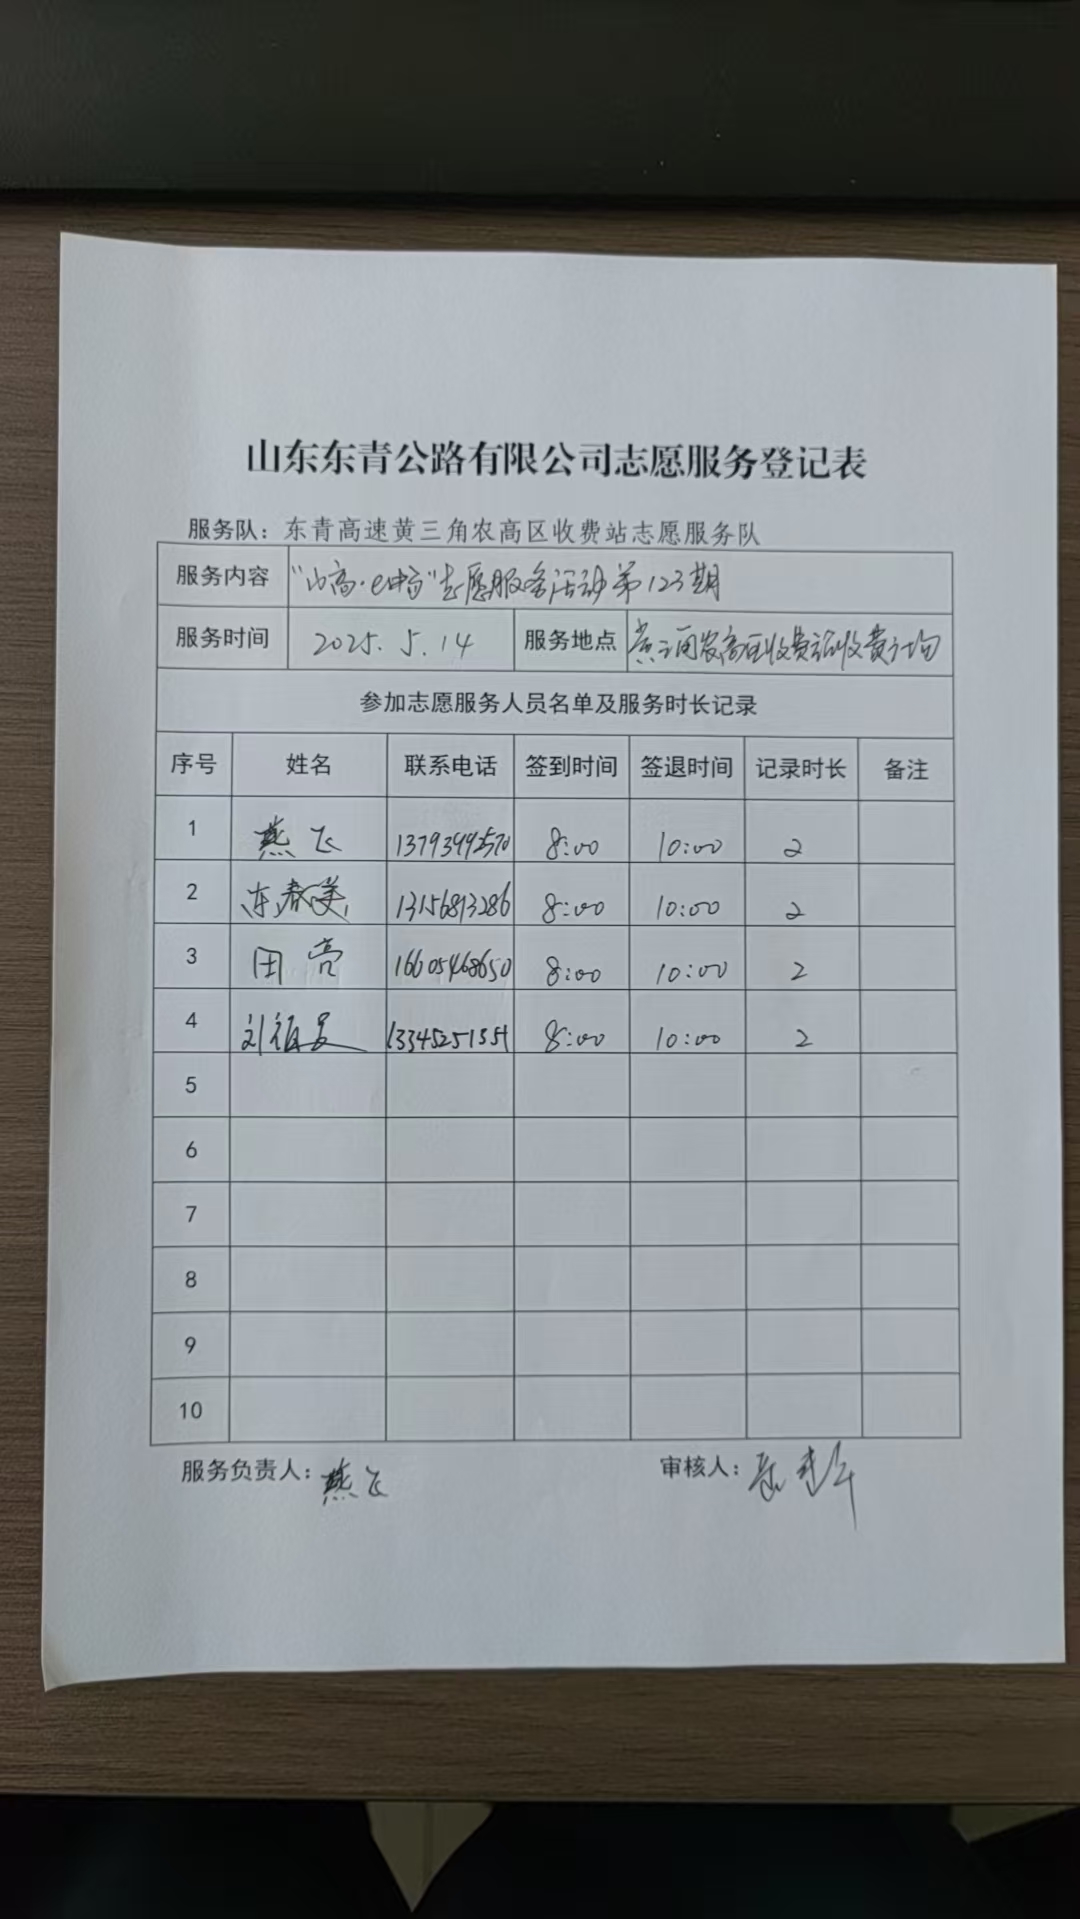 山东东青公路有限公司志愿服务登记表
服务队：东青高速黄三角农高区收费站志愿服务队
服务内容 "山高·e中高"志愿服务活动第123期
服务时间 2025.5.14 服务地点 黄三角农高区收费站收费广场
参加志愿服务人员名单及服务时长记录
序号 姓名 联系电话 签到时间 签退时间 记录时长 备注
1 燕飞 13793492570 8:00 10:00 2
2 东春美 13156813286 8:00 10:00 2
3 田亮 16605468650 8:00 10:00 2
4 刘 13345251351 8:00 10:00 2
5
6
7
8
9
10
服务负责人：燕飞 审核人：